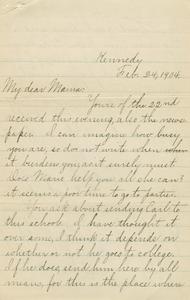 Kennedy
Feb. 24, 1904.
My dear Mama:
Yours of the 22nd
received this evening, also the news
paper. I can imagine how busy
you are, so do not write when
it burdens you, as it surely must.
Does Marie help you all she can? It
seems a poor time to go to parties.
You ask about sending Earl to
this school. I have thought it
over some, I think it depends on
whether or not he goes to college.
If he does, send him here by all
means, for this is the place where